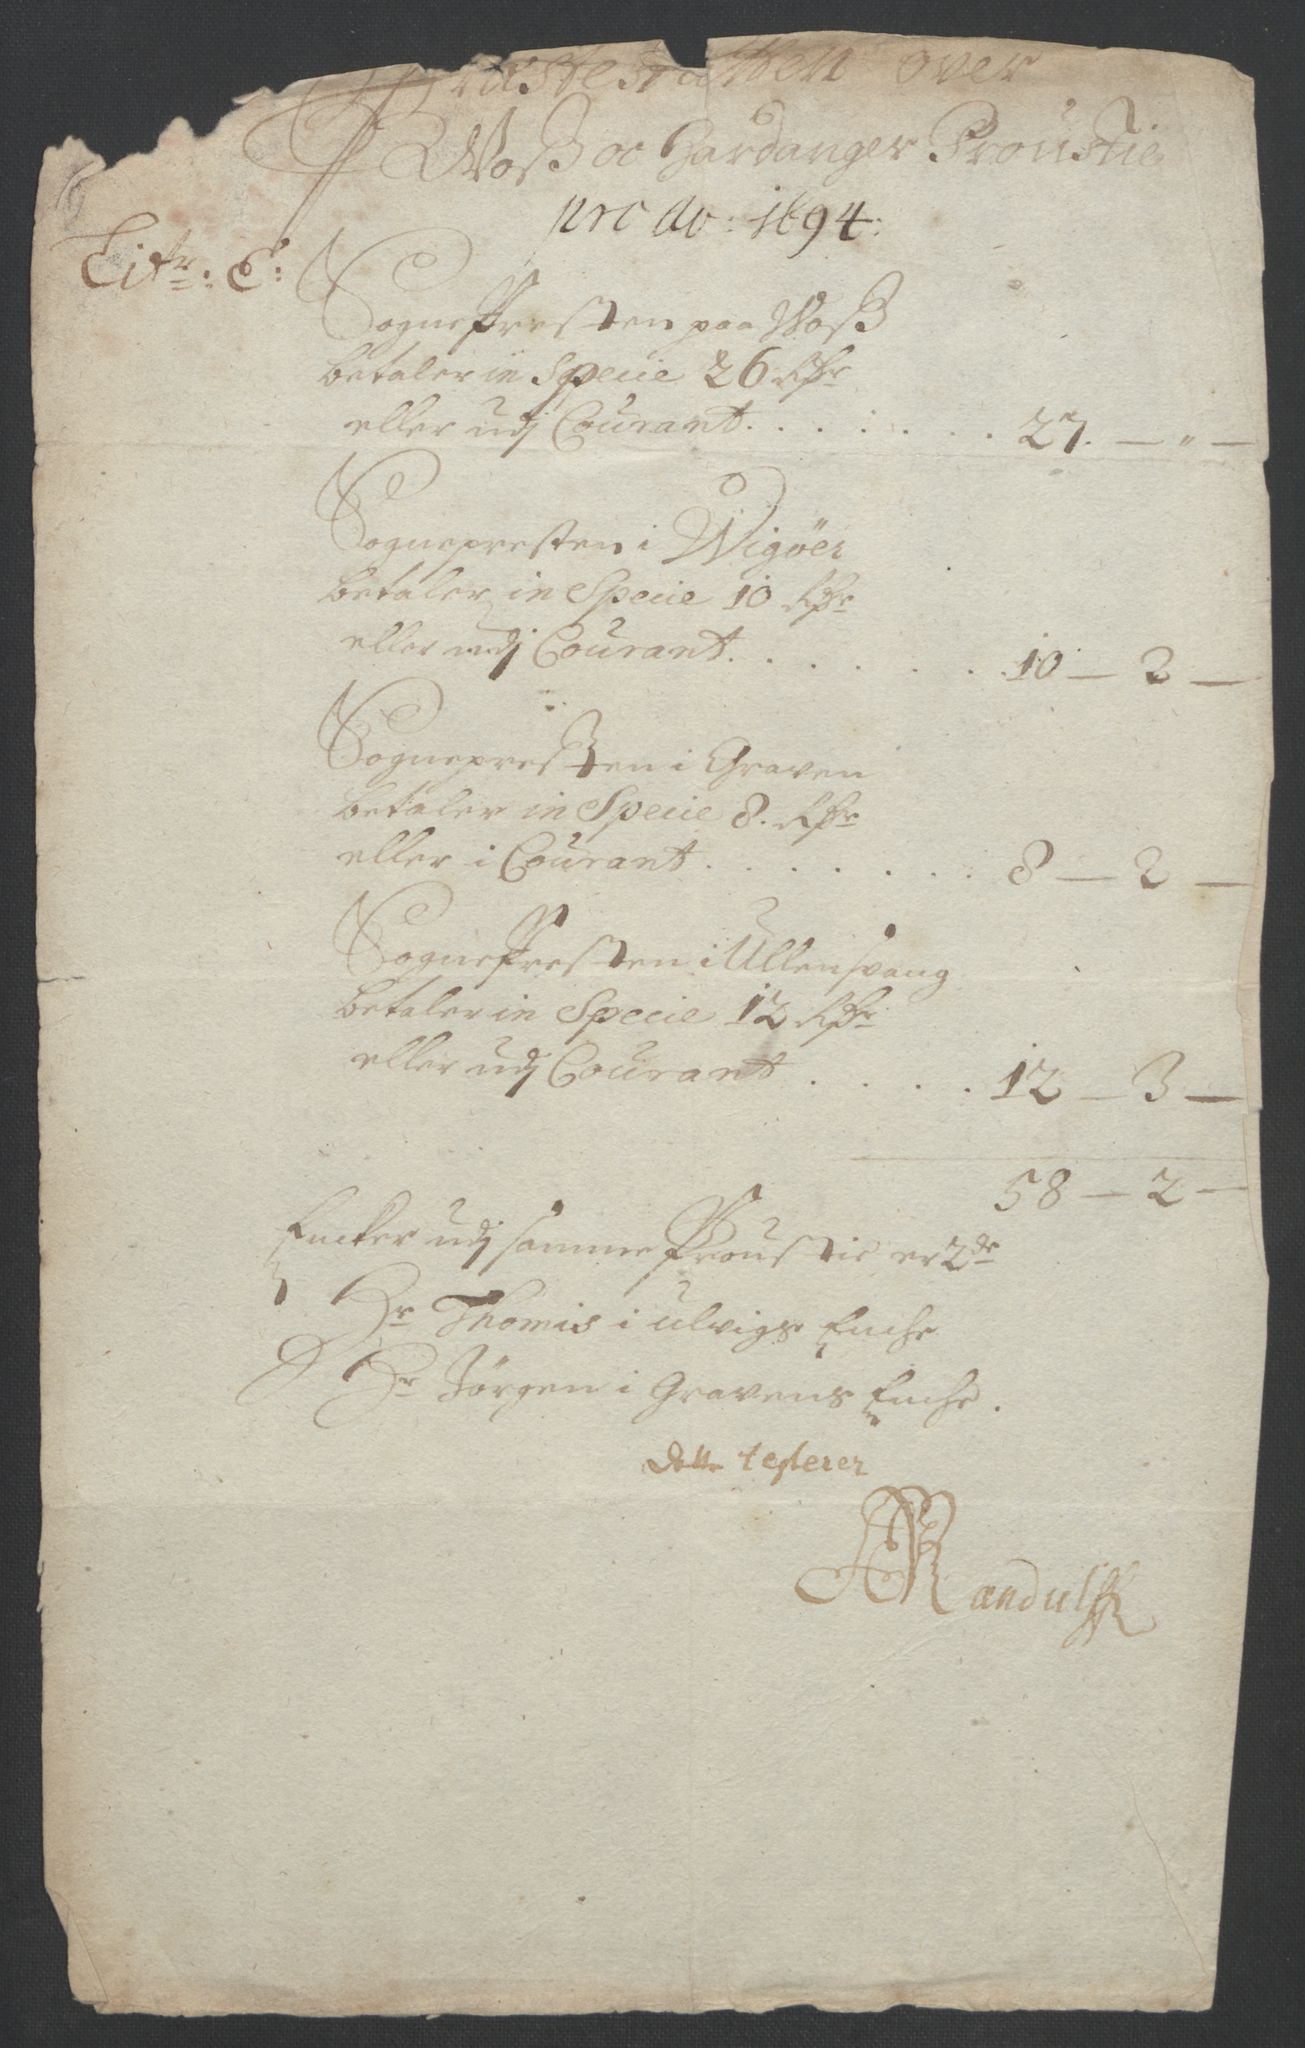 Præsteskatten over
Woß oc Hardanger Proustie
pro Ao: 1694:
Litr: E:
Sognepresten paa Woß
betaler in Specie 26 Rdr
eller udj Courant. . . . . . . 27. — " —
Sognepresten i Wigøer
betaler in Specie 10 Rdr
eller udj Courant. . . . . . . 10 — 2 —
Sognepresten i Graven
betaler in Specie 8. Rdr
eller i Courant . . . . . . . 8 — 2 —
Sognepresten i Ullensvang
betaler in Specie 12 Rdr
eller udj Courant . . . . 12 — 3 —
58 — 2 —
Encker udj samme Proustie er 2de
Hr Thomis i Ulvigs Enche
Hr Jørgen i Gravens Enche.
Dette testerer
Randulff